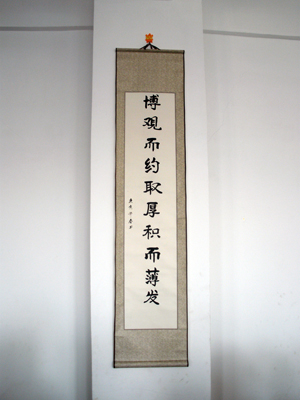 博观而约取厚积而薄发